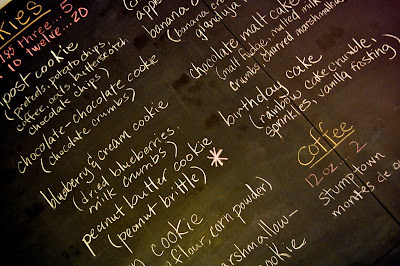 kies
three... 5
Twelve...20
post cookie
(pretzels, potato chips,
coffee, oats, butterscotch,
chocolate chips)
chocolate-chocolate cookie
(chocolate crumbs)
blueberry & cream cookie
(dried blueberries,
milk crumbs)
peanut butter cookie *
(peanut brittle)
cookie
flour, corn powder)
marshmallow-
ookie
apple
banana c
(banana,
gianduja
chocolate malt cake
(malt fudge, malted milk
crumbs, charred marshmallows
birthday cake
(rainbow cake crumble,
sprinkles, vanilla frosting)
Coffee
12 oz 2
stumptown
montes de o